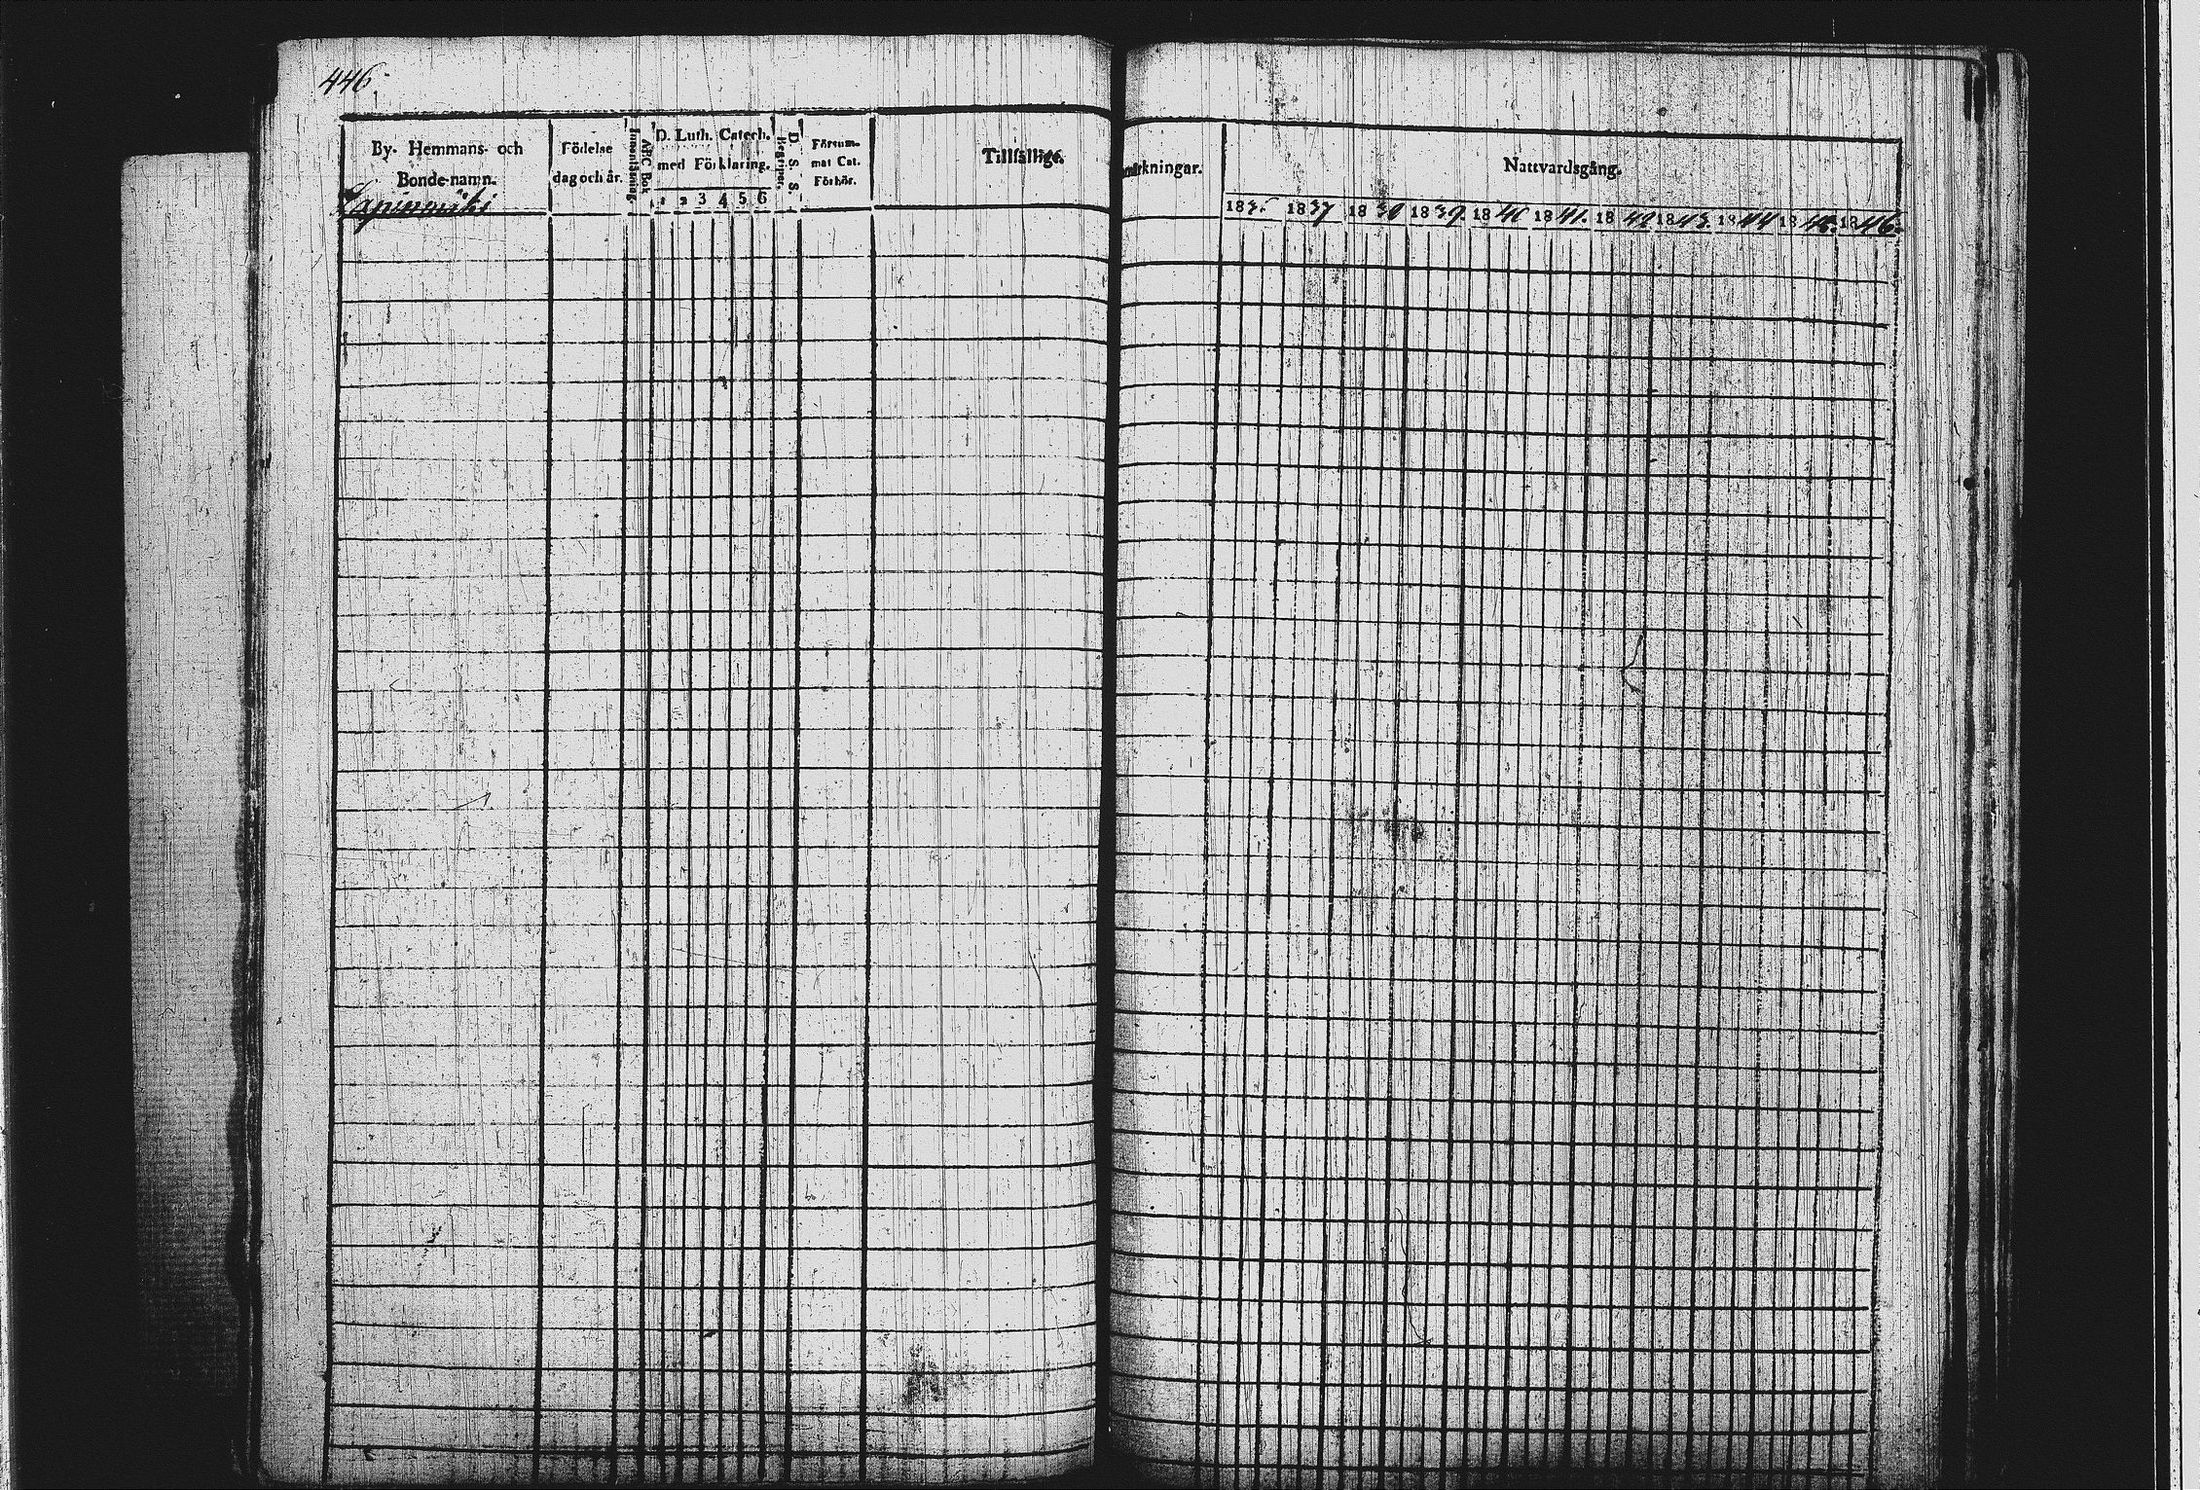 446.
By- Hemmans- och
Bonde-namn.
Födelse
dag och år.
ABC Bok
Innanläsning.
D. Luth. Catech.
med Förklaring.
1 2 3 4 5 6
D. S. S.
Begreper.
Försum-
mat Cat.
Förhör.
Tillfällige
märkningar.
Nattvardsgång.
183 1837 1838 1839. 1840 1841. 1842 1843. 1844 1845. 1846.